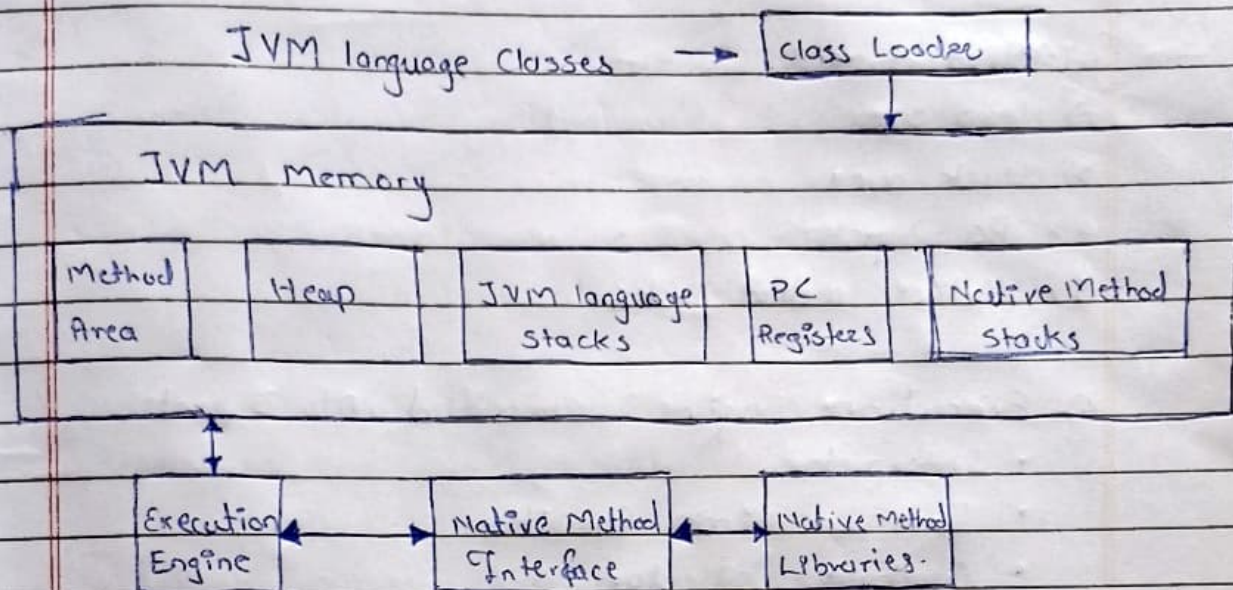 JVM language Classes
Class Loader
JVM Memory
Method
Area
Heap
JVM language
Stacks
PC
Registers
Native Method
Stacks
Execution
Engine
Native Method
Interface
Native Method
Libraries.